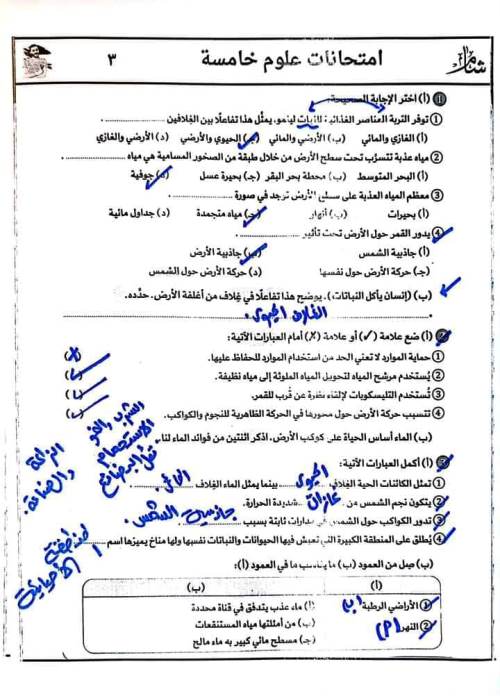 امتحانات علوم خامسة
٣
١ (أ) اختر الإجابة الصحيحة:
١ توفر التربة العناصر الغذائية للنبات لينمو، يمثل هذا تفاعلًا بين الغلافين ...............
أ) الغازي والمائي ب) الأرضي والمائي ج) الحيوي والأرضي د) الأرضي والغازي
٢ مياه عذبة تتسرَّب تحت سطح الأرض من خلال طبقة من الصخور المسامية هي مياه ...............
أ) البحر المتوسط ب) محطة بحر البقر ج) بحيرة عسل د) جوفية
٣ معظم المياه العذبة على سطح الأرض توجد في صورة ...............
أ) بحيرات ب) أنهار ج) مياه متجمدة د) جداول مائية
٤ يدور القمر حول الأرض تحت تأثير ...............
أ) جاذبية الشمس ب) جاذبية الأرض
ج) حركة الأرض حول نفسها د) حركة الأرض حول الشمس
(ب) (إنسان يأكل النباتات)، يوضح هذا تفاعلًا في غلاف من أغلفة الأرض. حدَّده.
الغلاف الحيوى
(أ) ضع علامة (✓) أو علامة (X) أمام العبارات الآتية:
١ حماية الموارد لا تعني الحد من استخدام الموارد للحفاظ عليها. (X)
٢ يُستخدم مرشح المياه لتحويل المياه الملوثة إلى مياه نظيفة. (✓)
٣ تُستخدم التليسكوبات لإلقاء نظرة عن قُرب للقمر. (✓)
٤ تتسبب حركة الأرض حول محورها في الحركة الظاهرية للنجوم والكواكب. (✓)
(ب) الماء أساس الحياة على كوكب الأرض. اذكر اثنتين من فوائد الماء لنا
الشرب
الاستحمام
الزراعة
والصناعة.
(أ) أكمل العبارات الآتية:
١ تمثل الكائنات الحية الغلاف الحيوى بينما يمثل الماء الغلاف المائى.
٢ يتكون نجم الشمس من غازات شديدة الحرارة.
٣ تدور الكواكب حول الشمس في مدارات ثابتة بسبب جاذبية الشمس.
٤ يُطلق على المنطقة الكبيرة التي تعيش فيها الحيوانات والنباتات نفسها ولها مناخ يميزها اسم
(ب) صِل من العمود (ب) ما يناسب ما في العمود (أ):
(أ) (ب)
١ الأراضي الرطبة (ب) أ) ماء عذب يتدفق في قناة محددة
٢ النهر (أ) ب) من أمثلتها مياه المستنقعات
ج) مسطح مائي كبير به ماء مالح